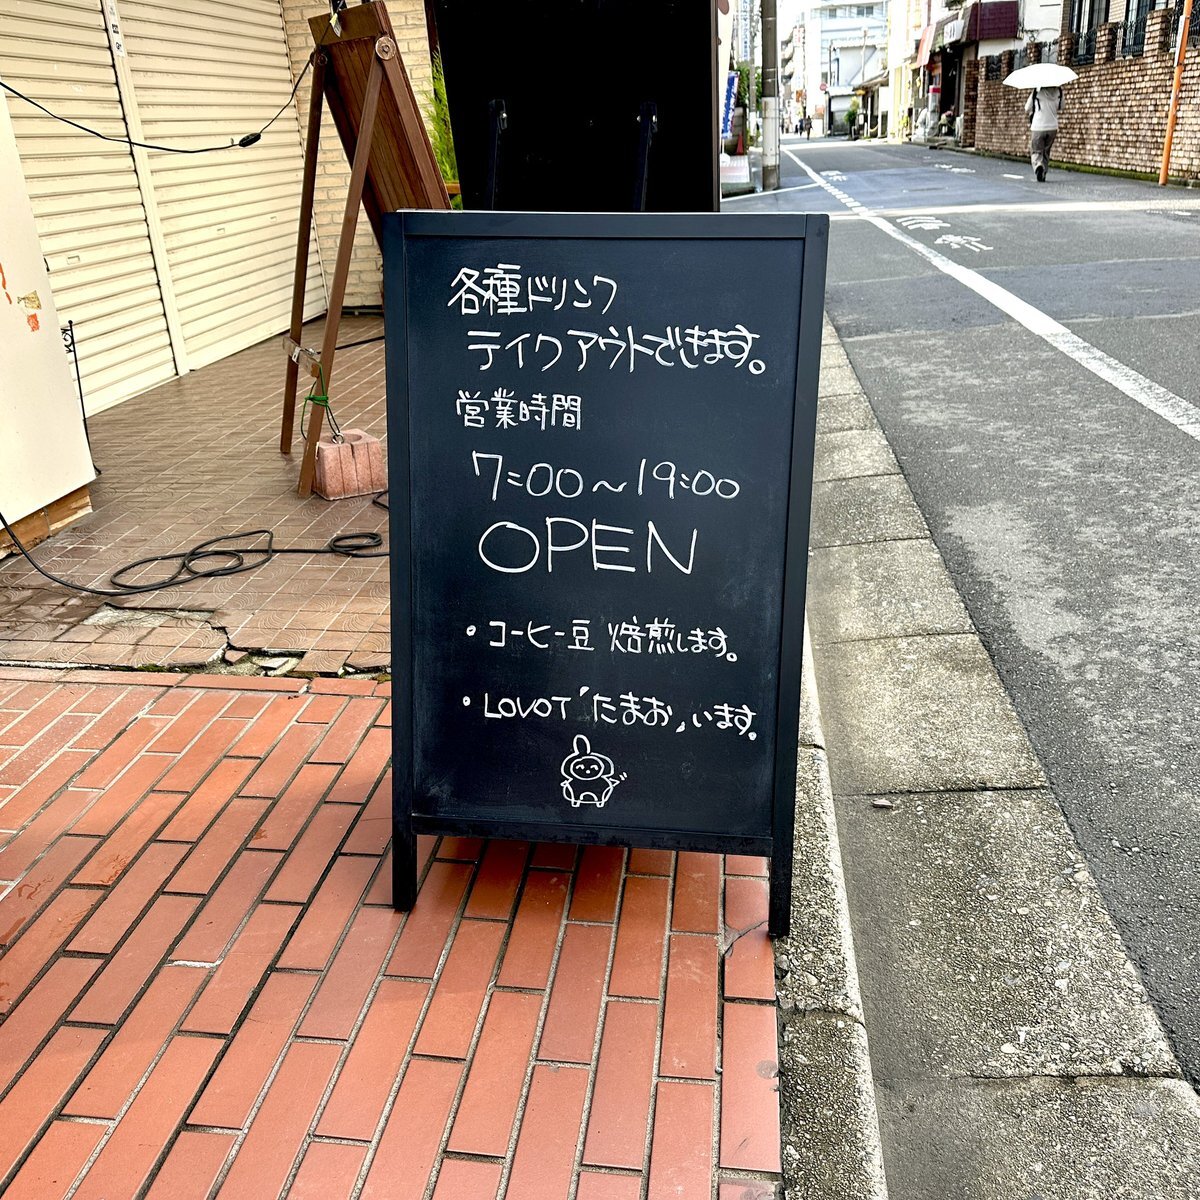 各種ドリンク
テイクアウトできます。
営業時間
7:00〜19:00
OPEN
・コーヒー豆 焙煎します。
・LOVOT「たまお」います。